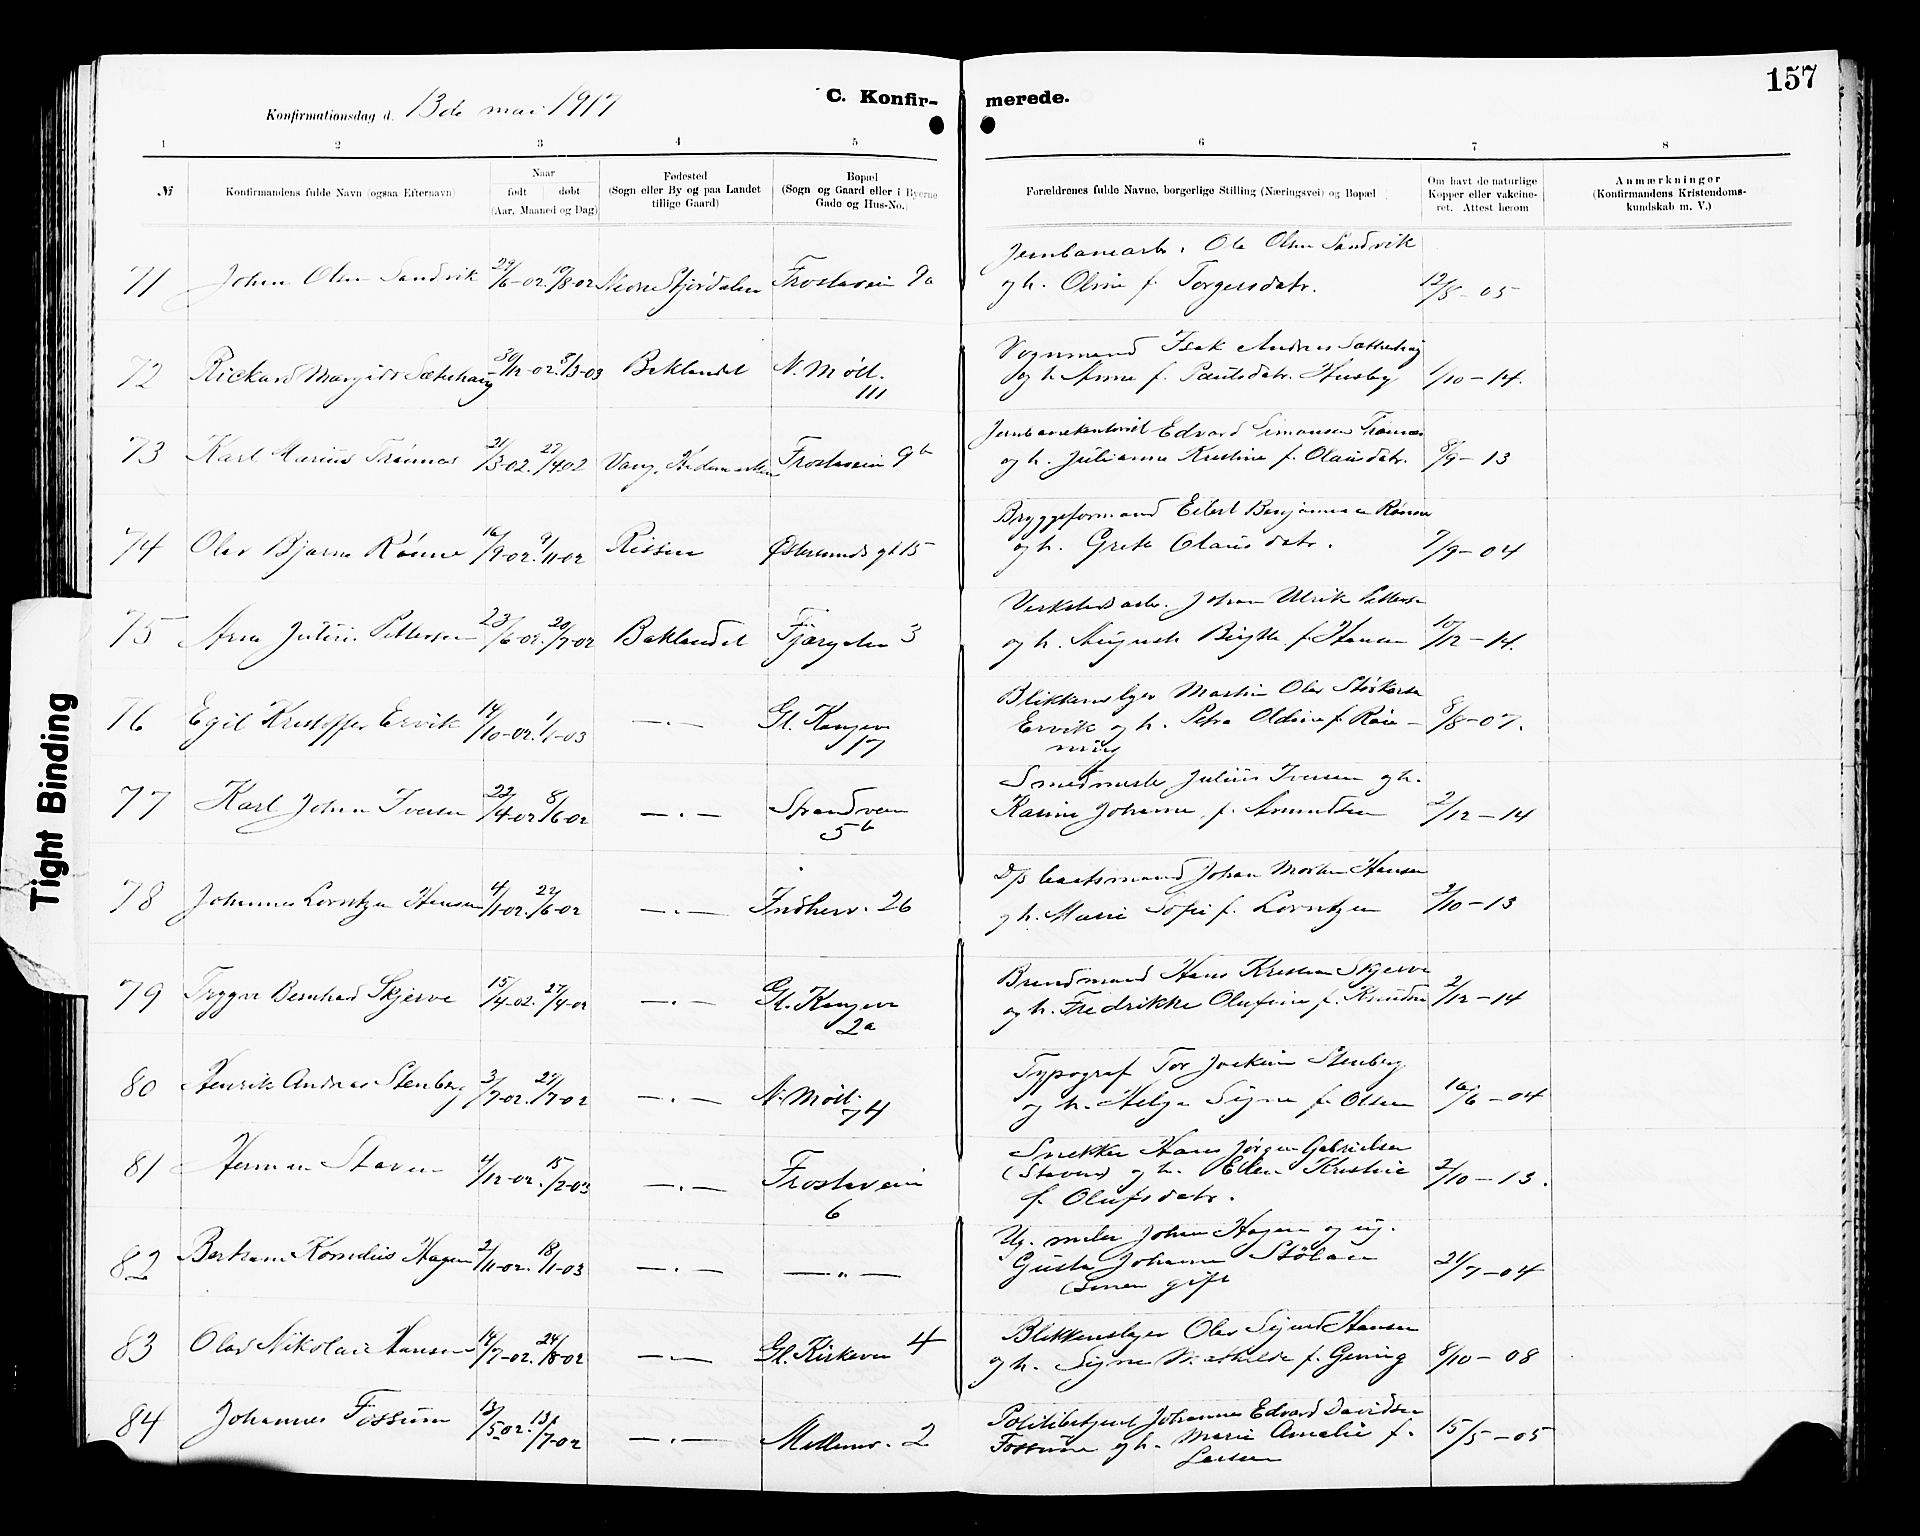 157
C. Konfir-
merede.
Konfirmationsdag d. 13de mai 1917
1 2 3 4 5 6 7 8
№
Konfirmandens fulde Navn (ogsaa Efternavn)
Naar
født døbt
(Aar, Maaned og Dag)
Fødested
(Sogn eller By og paa Landet
tillige Gaard)
Bopæl
(Sogn og Gaard eller i Byerne
Gade og Hus-No.)
Forældrenes fulde Navne, borgerlige Stilling (Næringsvei) og Bopæl
Om havt de naturlige
Kopper eller vakcine-
ret. Attest herom
Anmærkninger
(Konfirmandens Kristendoms-
kundskab m. V.)
Jernbanearb. Ole Olsen Sandvik
71 Johan Olsen Sandvik 29/6-02 10/8-02 Nedre Stjørdalen Frostavein 9a og h. Oline f. Torgersdatr. 12/5-05
Vognmand Isak Andreas Sætterhaug
72 Rickard Margido Sæterhaug 30/12-02 8/3-03 Baklandet N. Møll. og h. Anna f. Paulsdatr. Husby 1/10-14.
111
Jernbanekontorist Edvard Simonsen Trønnes
73 Karl Marius Trønnes 21/3-02. 27/4 02 Vang, Hedemarken Frostavein 9b og h. Julianna Kristine f. Olausdatr. 8/9-13
Bryggeformand Eilert Benjaminsen Rønne
74 Olav Bjarne Rønne 16/9-02. 9/11-02 Rissen Østersunds gt 15 og h. Grete Olausdatr. 7/9-04
Verkstedsarb. Johan Ulrik Pettersen
75 Arne Julius Pettersen 23/6-02. 20/7-02 Baklandet Fjærgaten 3 og h. Augusta Birgitte f. Hansen 10/12-14.
Blikkenslager Martin Olav Størkersen
76 Egil Kristoffer Ervik 14/10-02. 1/1-03 —„— Gl. Kongev. Ervik og h. Petra Oldine f. Røn- 8/8-07.
17 ning
Smedmester Julius Iversen og h.
77 Karl Johan Iversen 22/4-02 8/6-02 —„— Strandveien Karine Johanne f. Amundsen 2/12-14
5b
D/s baatsmand Johan Morten Hansen
78 Johannes Lorntzen Hansen 4/1-02. 22/6-02 —„— Indherv. 26 og h. Marie Sofie f. Lorntzen 2/10-13
Brandmand Hans Kristian Skjerve
79 Trygve Bernhard Skjerve 15/4-02. 27/4-02 —„— Gl. Kongev. og h. Fredrikke Olufine f. Knudsen 2/12-14
2a
Typograf Tor Joakim Stenberg
80 Henrik Andreas Stenberg 3/7-02. 27/7-02 —„— N. Møll. og h. Helga Signe f. Olsen 16/6-04
74
Snekker Hans Jørgen Gabrielsen
81 Herman Staven 4/12-02. 15/2-03 —„— Frostavein (Staven) og h. Ellen Kristine 2/10-13.
6 f. Olufsdatr.
Ug. maler Johan Hagen og ug.
82 Bertram Kornelius Hagen 2/11-02. 18/1-03 —„— —„— Gusta Johanne Stølan 21/7-04
(senere gift
Blikkenslager Olav Sigurd Hansen
83 Olav Nikolai Hansen 14/7-02. 24/8-02 —„— Gl. Kirkevei 4 og h. Signe Mathilde f. Gening 8/10-08
Politibetjent Johannes Edvard Davidsen
84 Johannes Fossum 13/5 02. 13/7-02 —„— Mellemv. 2 Fossum og h. Marie Amalie f. 15/5-05
Larsen
Tight Binding